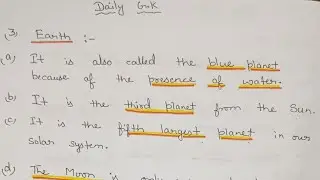 Daily G.K
(3) Earth :-
(a) It is also called the blue planet
because of the presence of water.
(b) It is the third planet from the Sun.
(c) It is the fifth largest planet in our
solar system.
(d) The Moon is